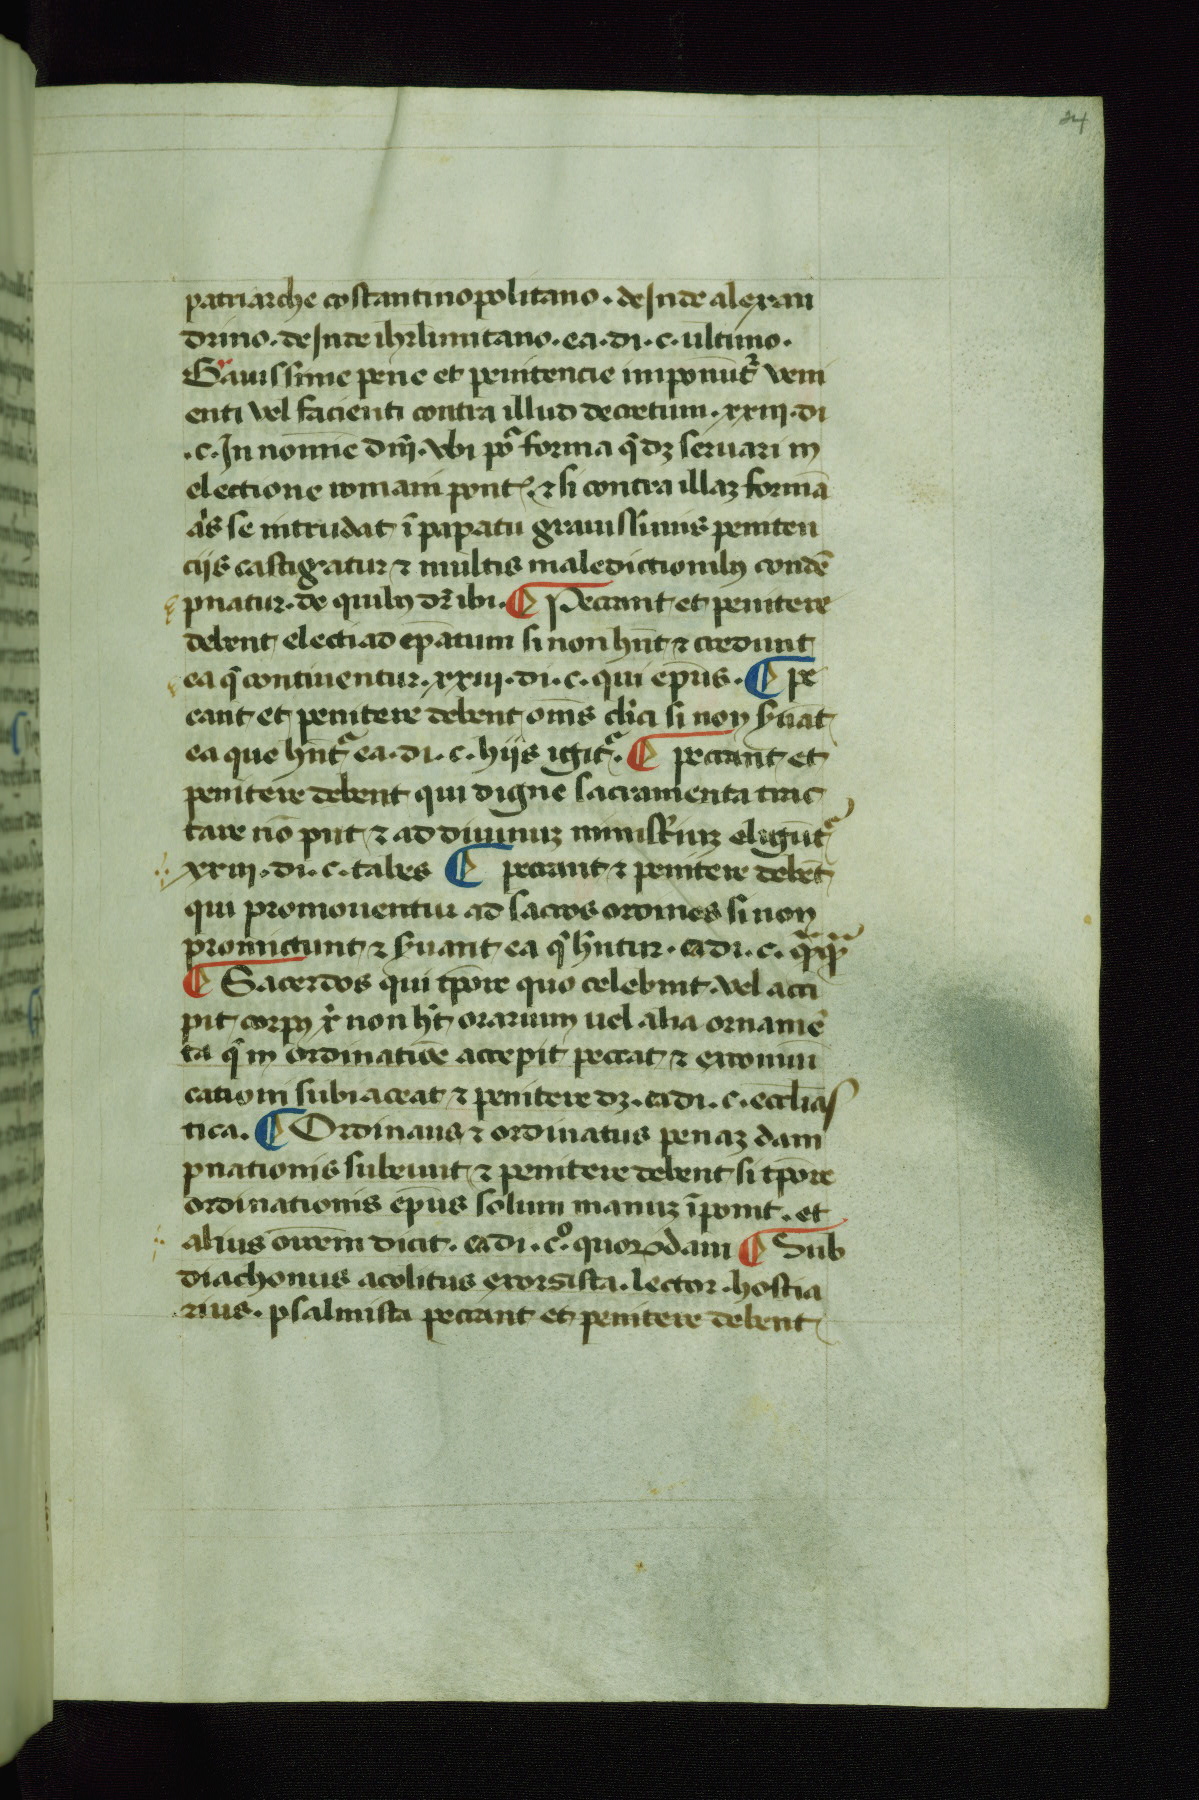 24
patriarche costantinopolitano. deJnde alexan
drino. deJnde ihrlimitano. ea. di. c. ultimo.
Gravissime pene et penitencie imponut᷑ veni
enti vel facienti contra illud decretum. xxiii. di
.c. In nomīe dn̄i. vbi po᷑ forma q̄ dꝫ seruari in
electione romani pont᷑. ⁊ si contra illaꝫ formā
aꝉs se intrudat ī papatu grauissimis peniten
ciis castigatur ⁊ multis maledictionibꝰ condē
pnatur. de quibꝰ dr̄ ibi. ¶ Peccant et penitere
debent electi ad ep̄atum si non hn̄t ⁊ credunt
ea q̄ continentur. xxiii. di. c. qui ep̄us. ¶ pe
cant et penitere debent om̄s cl̄ici si non ẜuāt
ea que hn̄t᷑ ea. di. c. hiis igit᷑. ¶ peccant et
penitere debent qui digne sacramenta trac
tare nō pn̄t ⁊ ad diuinuꝫ minist̄iuꝫ eligūt᷑
xxiii. di. c. tales ¶ peccant ⁊ penitere debēt
qui promouentur ad sacros ordines si non
promictunt ⁊ ẜuant ea q̄ hn̄tur. eadi. c. q̄q̄
¶ Sacerdos qui tp̄ore quo celebrat vel acci
pit corpꝰ xp̄i non hēt orarium uel alia ornamē
ta q̄ in ordinatiōe accepit peccat ⁊ excomuni
cationi subiaceat ⁊ penitere dꝫ. eadi. c. eccl̄ias
tica. ¶ Ordinans ⁊ ordinatus penaꝫ dam
pnationis subeunt ⁊ penitere debent si tp̄ore
ordinationis ep̄us solum manuꝫ īponit. et
alius or̄om̄ dicit. eadi. c̊. quorūdam ¶ Sub
diachonus acolitus exorsista. lector. hostia
rius. psalmista peccant et penitere debent